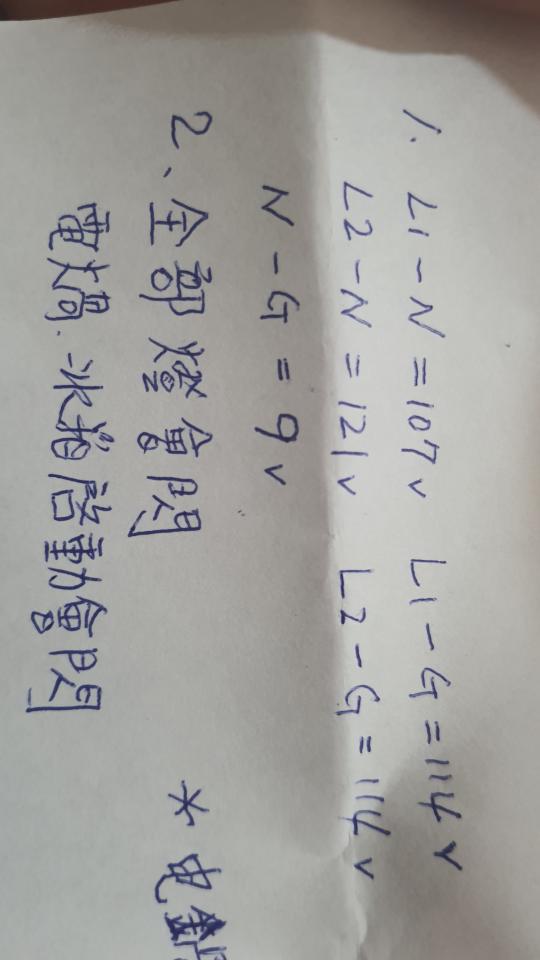 1. L1-N=107V L1-G=114V
L2-N=121V L2-G=114V
N-G=9V
2、全部燈會閃
電燭.水箱啓動會閃
*电